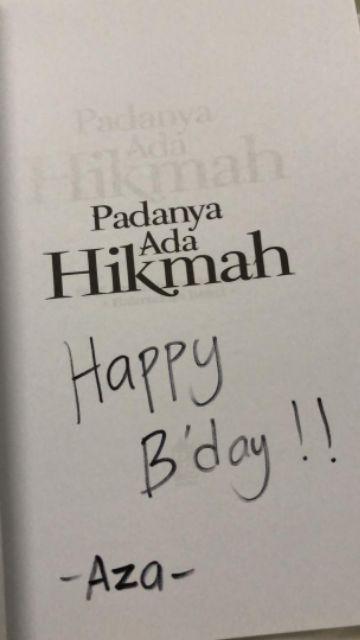 Padanya
Ada
Hikmah
Padanya
Ada
Hikmah
Happy
B'day !!
-Aza-